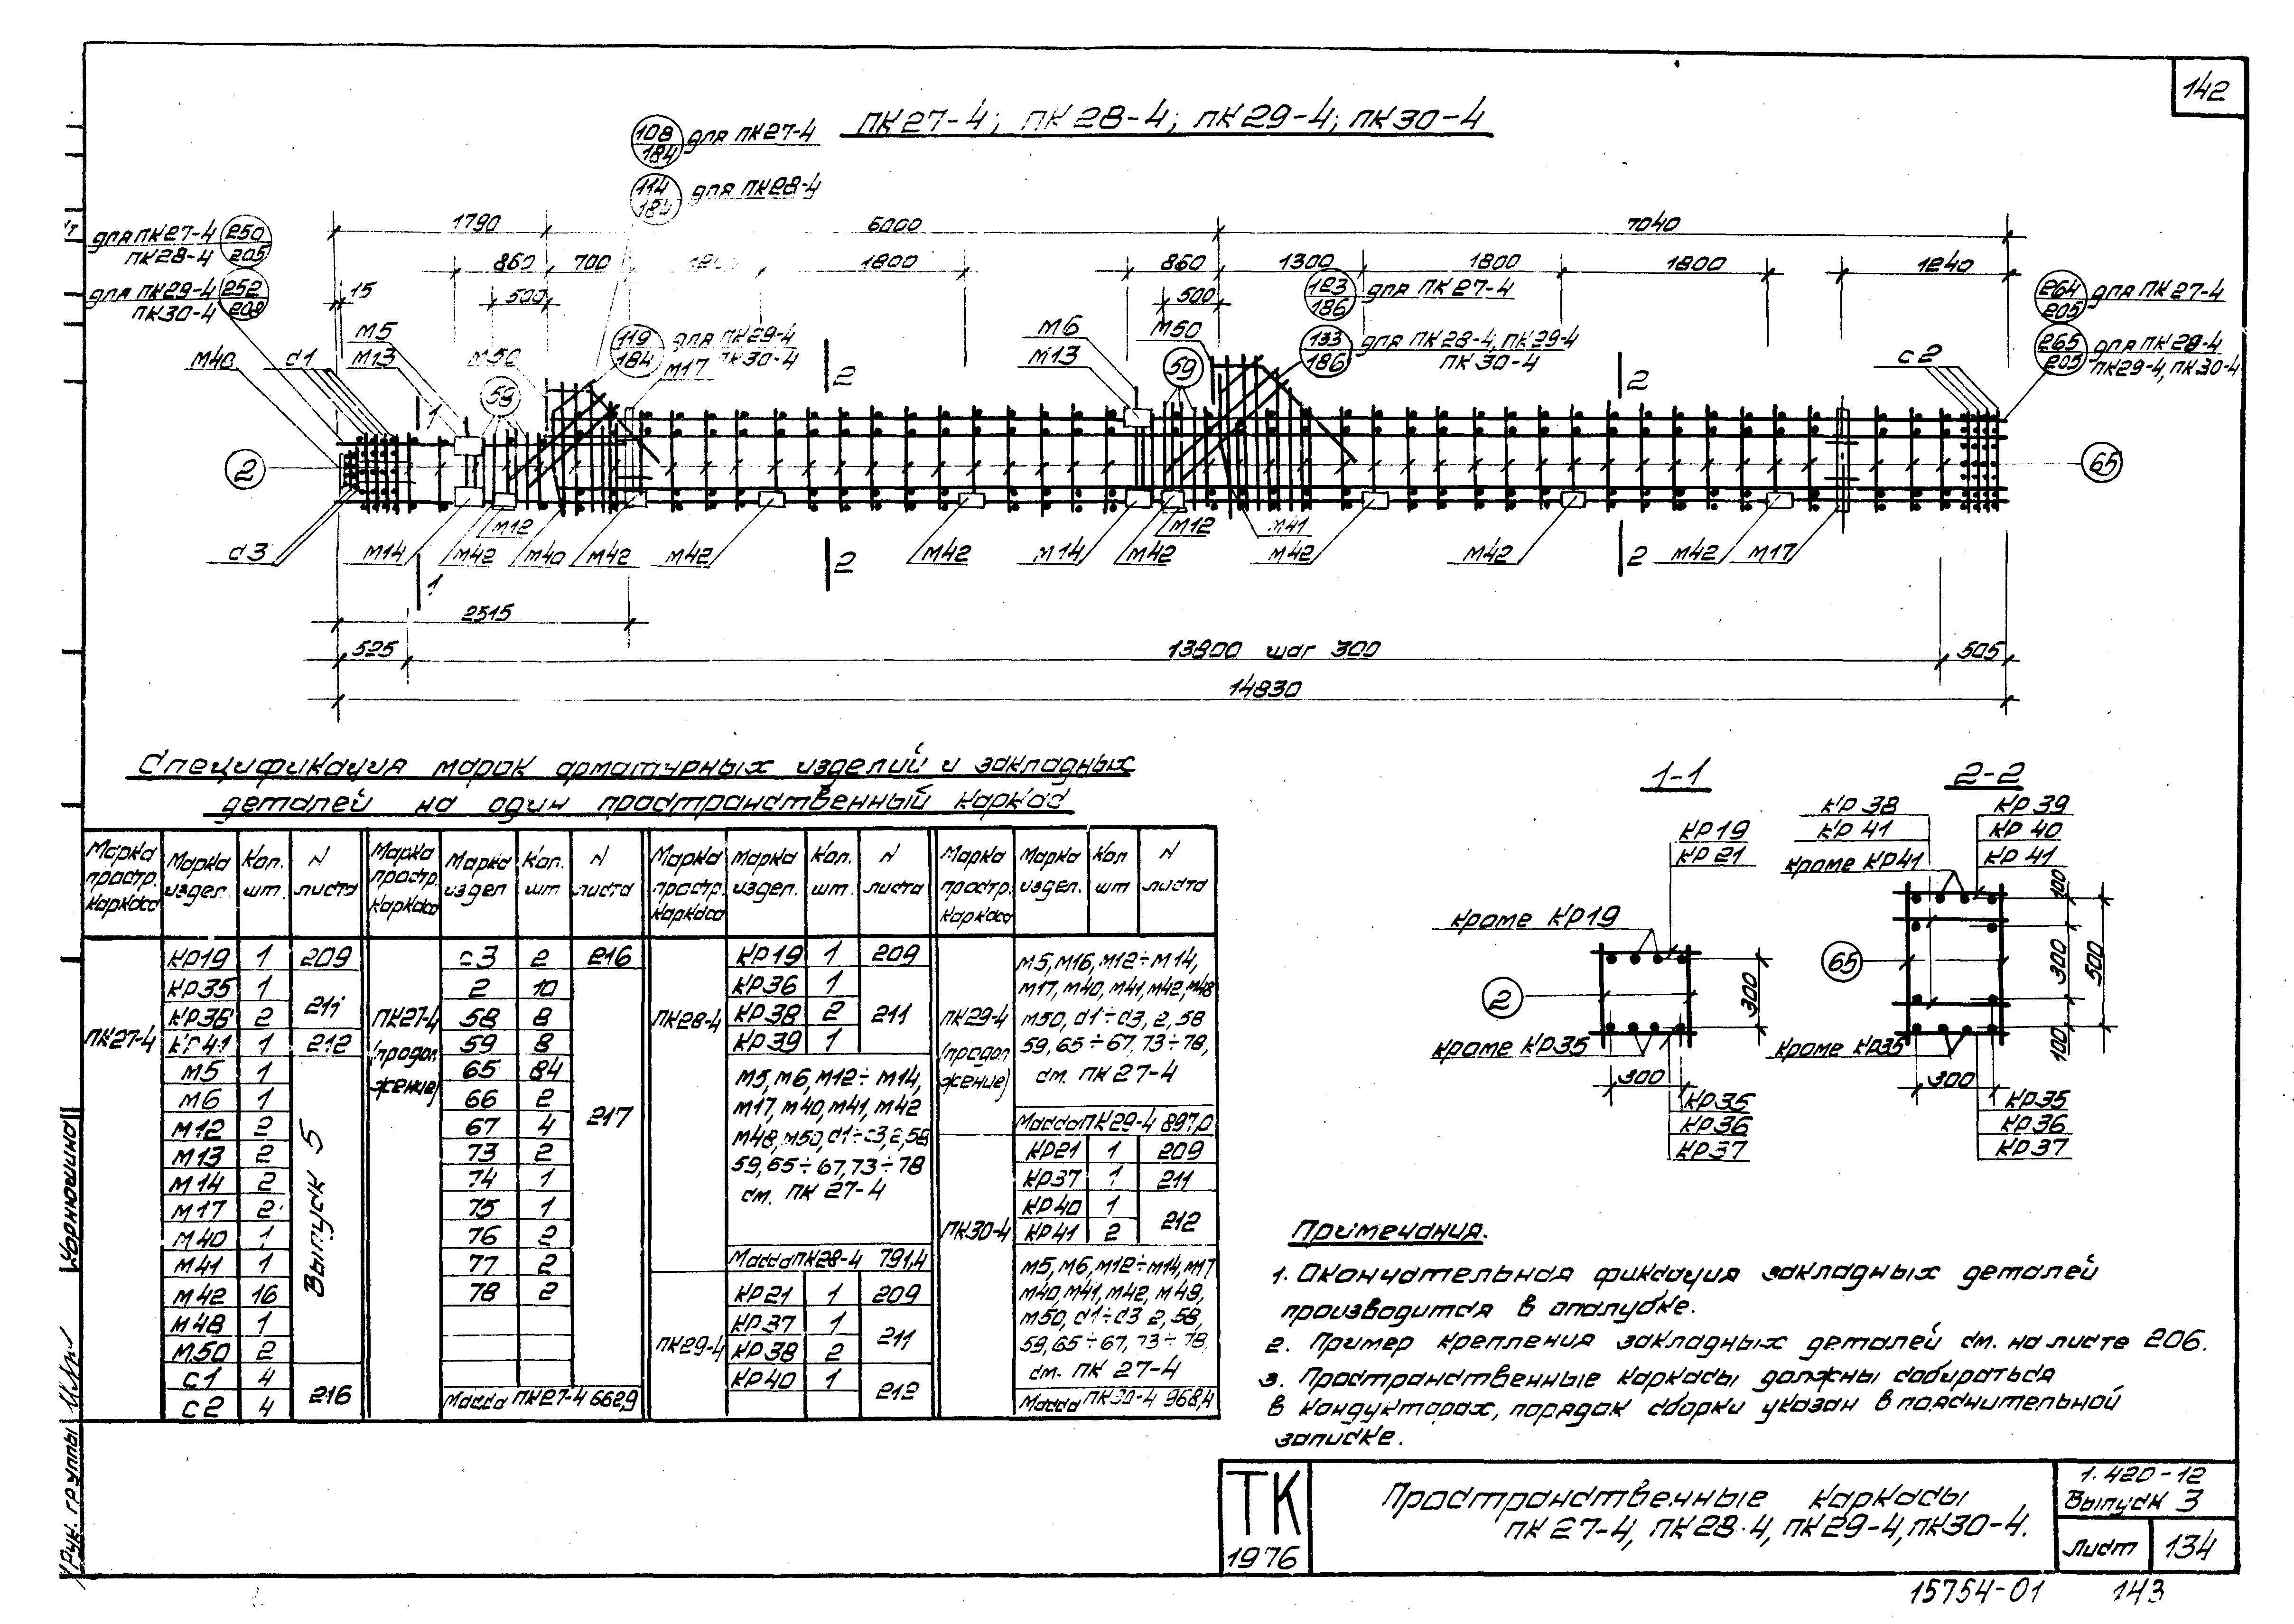 142
ПК27-4; ПК28-4; ПК29-4; ПК30-4
108
184
для ПК27-4
114
184
для ПК28-4
1790
6000
7040
для ПК27-4
ПК28-4
250
205
860
700
1800
860
1300
1800
1800
1240
для ПК29-4
ПК30-4
252
15
500
500
123
186
для ПК27-4
264
205
для ПК27-4
М5
М13
М40
d1
М50
58
119
184
для ПК29-4
ПК30-4
М17
2
М6
М13
М50
59
133
186
для ПК28-4, ПК29-4
ПК30-4
2
с2
265
205
для ПК28-4
ПК29-4, ПК30-4
1
2
65
d3
М14
М42
М12
М40
М42
М42
2
М42
М14
М42
М12
М41
М42
М42
2
М42
М17
1
2515
525
13800 шаг 300
505
14830
Спецификация марок арматурных изделий и закладных
деталей на один пространственный каркас
Марка простр. каркаса
Марка издел.
Кол. шт.
N листа
Марка простр. каркаса
Марка издел
Кол. шт.
N листа
Марка простр. каркаса
Марка издел.
Кол. шт.
N листа
Марка простр. каркаса
Марка издел.
Кол шт
N листа
ПК27-4
КР19 1 209
КР35 1
КР38 2
211
КР41 1 212
М5 1
М6 1
М12 2
М13 2
М14 2
М17 2
М40 1
М41 1
М42 16
М48 1
М50 2
Выпуск 5
С1 4
С2 4
216
ПК27-4
(продол
жение)
с3 2 216
2 10
58 8
59 8
65 84
66 2
67 4
73 2
74 1
75 1
76 2
77 2
78 2
217
Масса ПК27-4 662,9
ПК28-4
КР19 1 209
КР36 1
КР38 2
КР39 1
211
М5, М6, М12÷М14,
М17, М40, М41, М42
М48, М50, d1÷d3, 2, 58
59, 65÷67, 73÷78
см. ПК 27-4
Масса ПК28-4 791,4
ПК29-4
КР21 1 209
КР37 1
КР38 2
211
КР40 1
212
ПК29-4
(продол
жение)
М5, М16, М12÷М14,
М17, М40, М41, М42, М48
М50, d1÷d3, 2, 58
59, 65÷67, 73÷78,
см. ПК 27-4
Масса ПК29-4 897,0
ПК30-4
КР21 1 209
КР37 1 211
КР40 1
КР41 2
212
М5, М6, М12÷М14, М17
М40, М41, М42, М49,
М50, d1÷d3 2, 58,
59, 65÷67, 73÷78,
см. ПК 27-4
Масса ПК30-4 968,4
1-1
КР19
КР21
кроме КР19
2
300
кроме КР35
300
КР35
КР36
КР37
2-2
КР38
КР41
кроме КР41
КР39
КР40
КР41
65
100
300
100
500
кроме КР35
300
КР35
КР36
КР37
Примечания.
1. Окончательная фиксация закладных деталей
производится в опалубке.
2. Пример крепления закладных деталей см. на листе 206.
3. Пространственные каркасы должны собираться
в кондукторах, порядок сборки указан в пояснительной
записке.
ТК
1976
Пространственные каркасы
ПК27-4, ПК28-4, ПК29-4, ПК30-4.
1.420-12
Выпуск 3
Лист 134
15754-01 143
Рук. группы
Корнюшина